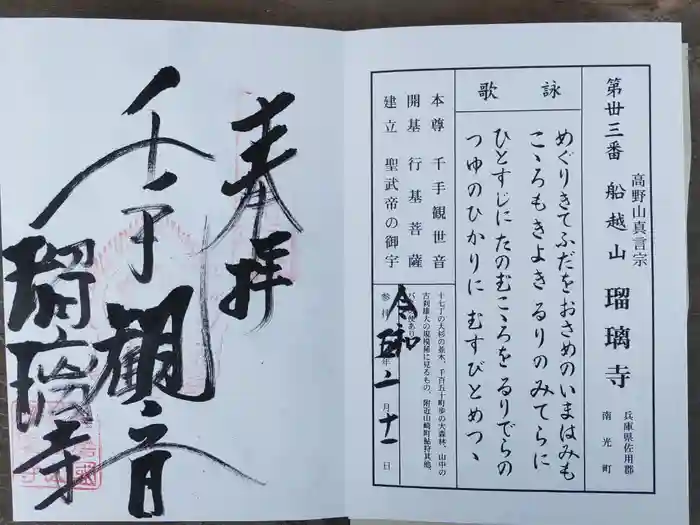 第卅三番 船越山 瑠璃寺
高野山真言宗
兵庫県佐用郡
南光町
詠歌
めぐりきてふだをおさめのいまはみも
こゝろもきよきるりのみてらに
ひとすじにたのむこゝろをるりでらの
つゆのひかりに むすびとめつゝ
本尊 千手観世音
開基 行基菩薩
建立 聖武帝の御宇
十七丁の大杉の並木、千百五十町歩の大森林、山中の
古刹雄大の規模稀に見るもの、附近山崎町鮎狩其他
参拝 令和 五年 二月 十一日
奉拝
千手観音
瑠璃寺